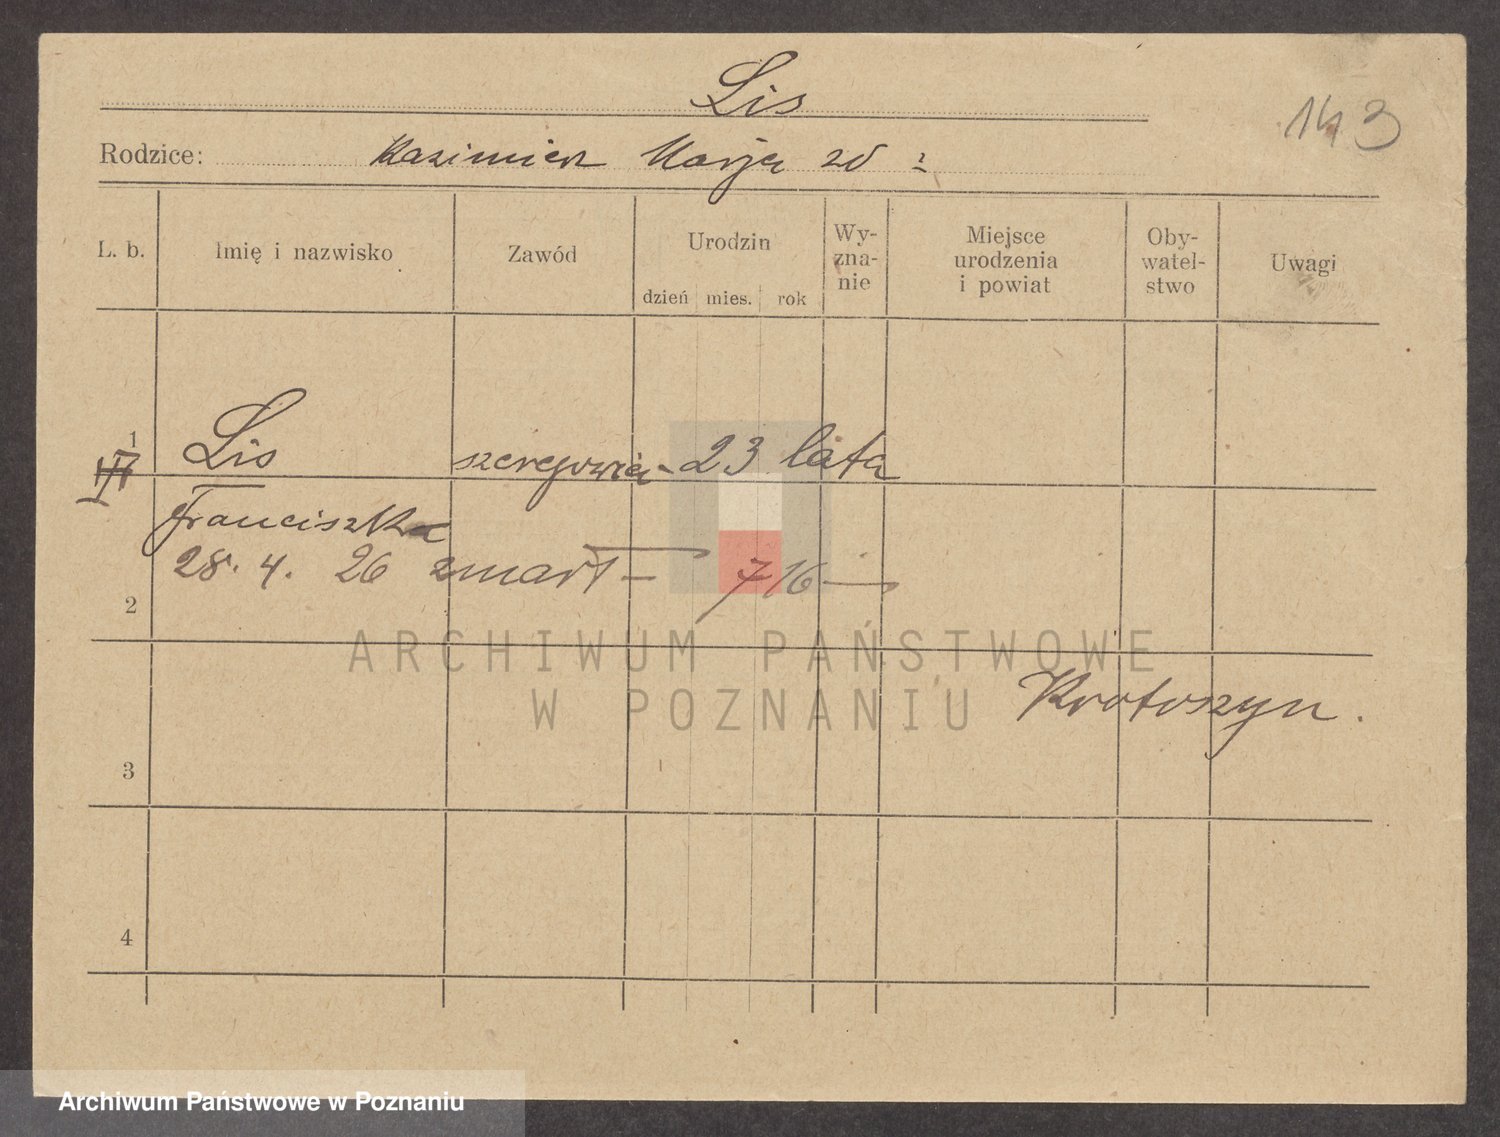 Lis
143
Rodzice: Kazimierz Marja zd ?
L. b. Imię i nazwisko Zawód Urodzin dzień mies. rok Wy-zna-nie Miejsce urodzenia i powiat Oby-watel-stwo Uwagi
1 Lis szeregowiec - 23 lata
Franciszka
28. 4. 26 zmarł — 716 —
2
ARCHIWUM PAŃSTWOWE
W POZNANIU
Krotoszyn.
3
4
Archiwum Państwowe w Poznaniu